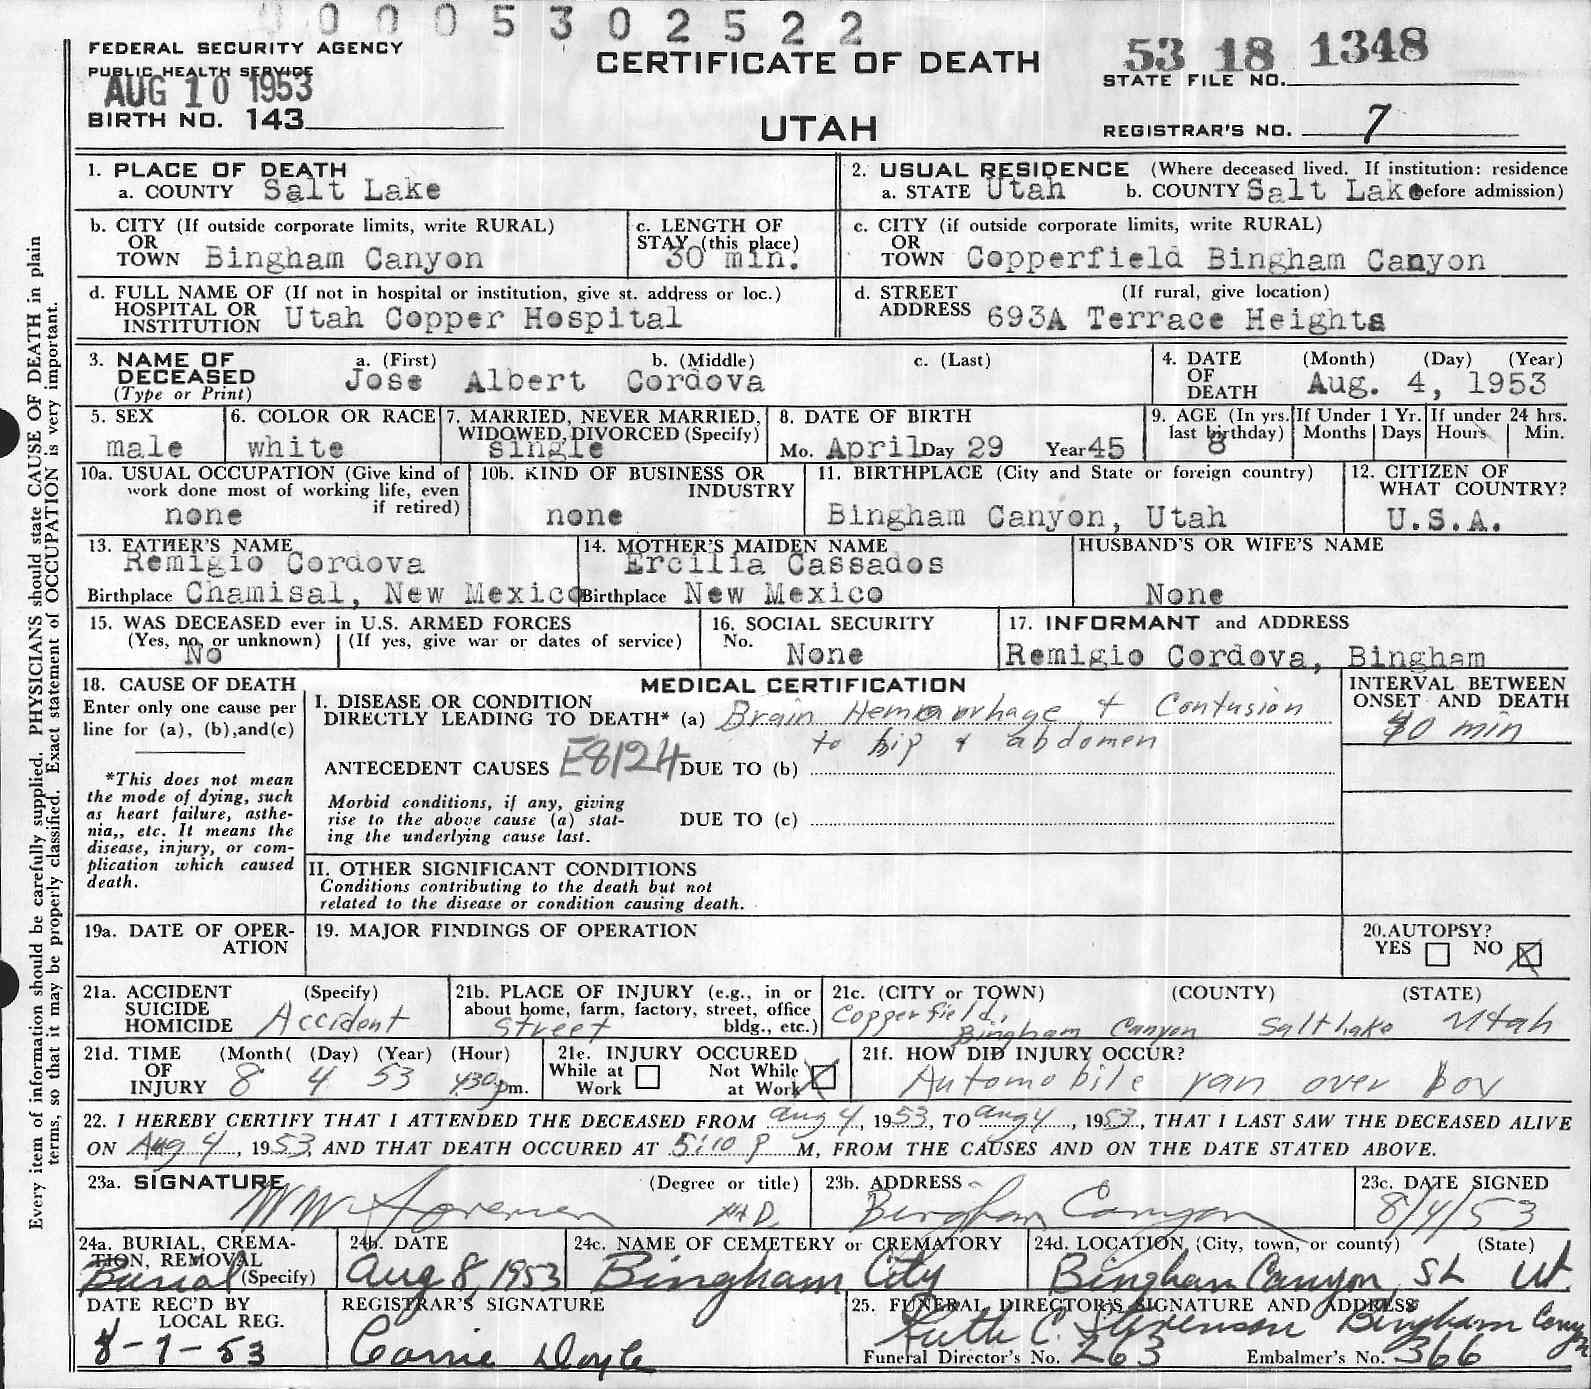 0 0 0 0 5 3 0 2 5 2 2
FEDERAL SECURITY AGENCY
PUBLIC HEALTH SERVICE
AUG 10 1953
BIRTH NO. 143
CERTIFICATE OF DEATH
UTAH
53 18 1348
STATE FILE NO.
REGISTRAR'S NO. 7
1. PLACE OF DEATH
a. COUNTY Salt Lake
2. USUAL RESIDENCE (Where deceased lived. If institution: residence
a. STATE Utah b. COUNTY Salt Lake before admission)
b. CITY (If outside corporate limits, write RURAL)
OR
TOWN Bingham Canyon
c. LENGTH OF
STAY (this place)
30 min.
c. CITY (if outside corporate limits, write RURAL)
OR
TOWN Copperfield Bingham Canyon
d. FULL NAME OF (If not in hospital or institution, give st. address or loc.)
HOSPITAL OR
INSTITUTION Utah Copper Hospital
d. STREET (If rural, give location)
ADDRESS 693A Terrace Heights
3. NAME OF a. (First) b. (Middle) c. (Last)
DECEASED Jose Albert Cordova
(Type or Print)
4. DATE (Month) (Day) (Year)
OF
DEATH Aug. 4, 1953
5. SEX
male
6. COLOR OR RACE
white
7. MARRIED, NEVER MARRIED,
WIDOWED, DIVORCED (Specify)
single
8. DATE OF BIRTH
Mo. April Day 29 Year 45
9. AGE (In yrs.
last birthday)
8
If Under 1 Yr.
Months Days
If under 24 hrs.
Hours Min.
10a. USUAL OCCUPATION (Give kind of
work done most of working life, even
if retired)
none
10b. KIND OF BUSINESS OR
INDUSTRY
none
11. BIRTHPLACE (City and State or foreign country)
Bingham Canyon, Utah
12. CITIZEN OF
WHAT COUNTRY?
U.S.A.
13. FATHER'S NAME
Remigio Cordova
Birthplace Chamisal, New Mexico
14. MOTHER'S MAIDEN NAME
Ercilia Cassados
Birthplace New Mexico
HUSBAND'S OR WIFE'S NAME
None
15. WAS DECEASED ever in U.S. ARMED FORCES
(Yes, no, or unknown) (If yes, give war or dates of service)
No
16. SOCIAL SECURITY
No. None
17. INFORMANT and ADDRESS
Remigio Cordova, Bingham
18. CAUSE OF DEATH
Enter only one cause per
line for (a), (b),and(c)
*This does not mean
the mode of dying, such
as heart failure, asthe-
nia,, etc. It means the
disease, injury, or com-
plication which caused
death.
MEDICAL CERTIFICATION
I. DISEASE OR CONDITION
DIRECTLY LEADING TO DEATH* (a) Brain Hemmorhage & Contusion
to hip & abdomen
ANTECEDENT CAUSES E8124 DUE TO (b)
Morbid conditions, if any, giving
rise to the above cause (a) stat-
ing the underlying cause last.
DUE TO (c)
II. OTHER SIGNIFICANT CONDITIONS
Conditions contributing to the death but not
related to the disease or condition causing death.
INTERVAL BETWEEN
ONSET AND DEATH
40 min
19a. DATE OF OPER-
ATION
19. MAJOR FINDINGS OF OPERATION
20.AUTOPSY?
YES NO
21a. ACCIDENT (Specify)
SUICIDE
HOMICIDE Accident
21b. PLACE OF INJURY (e.g., in or
about home, farm, factory, street, office
bldg., etc.)
Street
21c. (CITY or TOWN) (COUNTY) (STATE)
Copperfield,
Bingham Canyon Salt Lake Utah
21d. TIME (Month( (Day) (Year) (Hour)
OF
INJURY 8 4 53 430 pm.
21e. INJURY OCCURED
While at Not While
Work at Work
21f. HOW DID INJURY OCCUR?
Automobile ran over boy
22. I HEREBY CERTIFY THAT I ATTENDED THE DECEASED FROM Aug 4, 1953, TO Aug 4, 1953, THAT I LAST SAW THE DECEASED ALIVE
ON Aug 4, 1953, AND THAT DEATH OCCURED AT 5:10 P M, FROM THE CAUSES AND ON THE DATE STATED ABOVE.
23a. SIGNATURE (Degree or title)
W W Sorensen M D.
23b. ADDRESS
Bingham Canyon
23c. DATE SIGNED
8/4/53
24a. BURIAL, CREMA-
TION, REMOVAL
Burial (Specify)
24b. DATE
Aug 8, 1953
24c. NAME OF CEMETERY or CREMATORY
Bingham City
24d. LOCATION (City, town, or county) (State)
Bingham Canyon, SL Ut.
DATE REC'D BY
LOCAL REG.
8-7-53
REGISTRAR'S SIGNATURE
Carrie Doyle
25. FUNERAL DIRECTOR'S SIGNATURE AND ADDRESS
Ruth C. Stevenson Bingham Canyon
Funeral Director's No. 263 Embalmer's No. 366
Every item of information should be carefully supplied. PHYSICIANS should state CAUSE OF DEATH in plain
terms, so that it may be properly classified. Exact statement of OCCUPATION is very important.